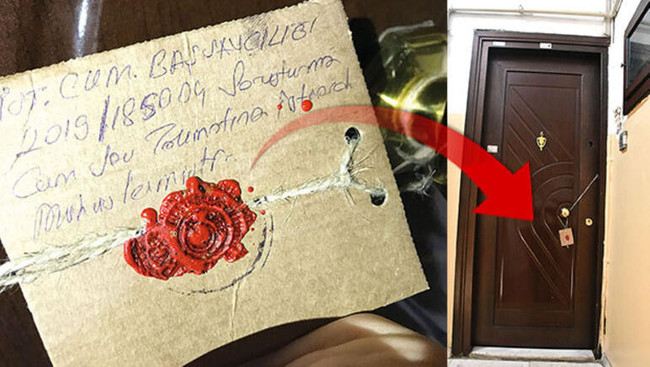 İST. CUM. BAŞSAVCILIĞI
2019/185004 Soruşturma
Cum Sav Talimatına
Mühürlenmiştir.